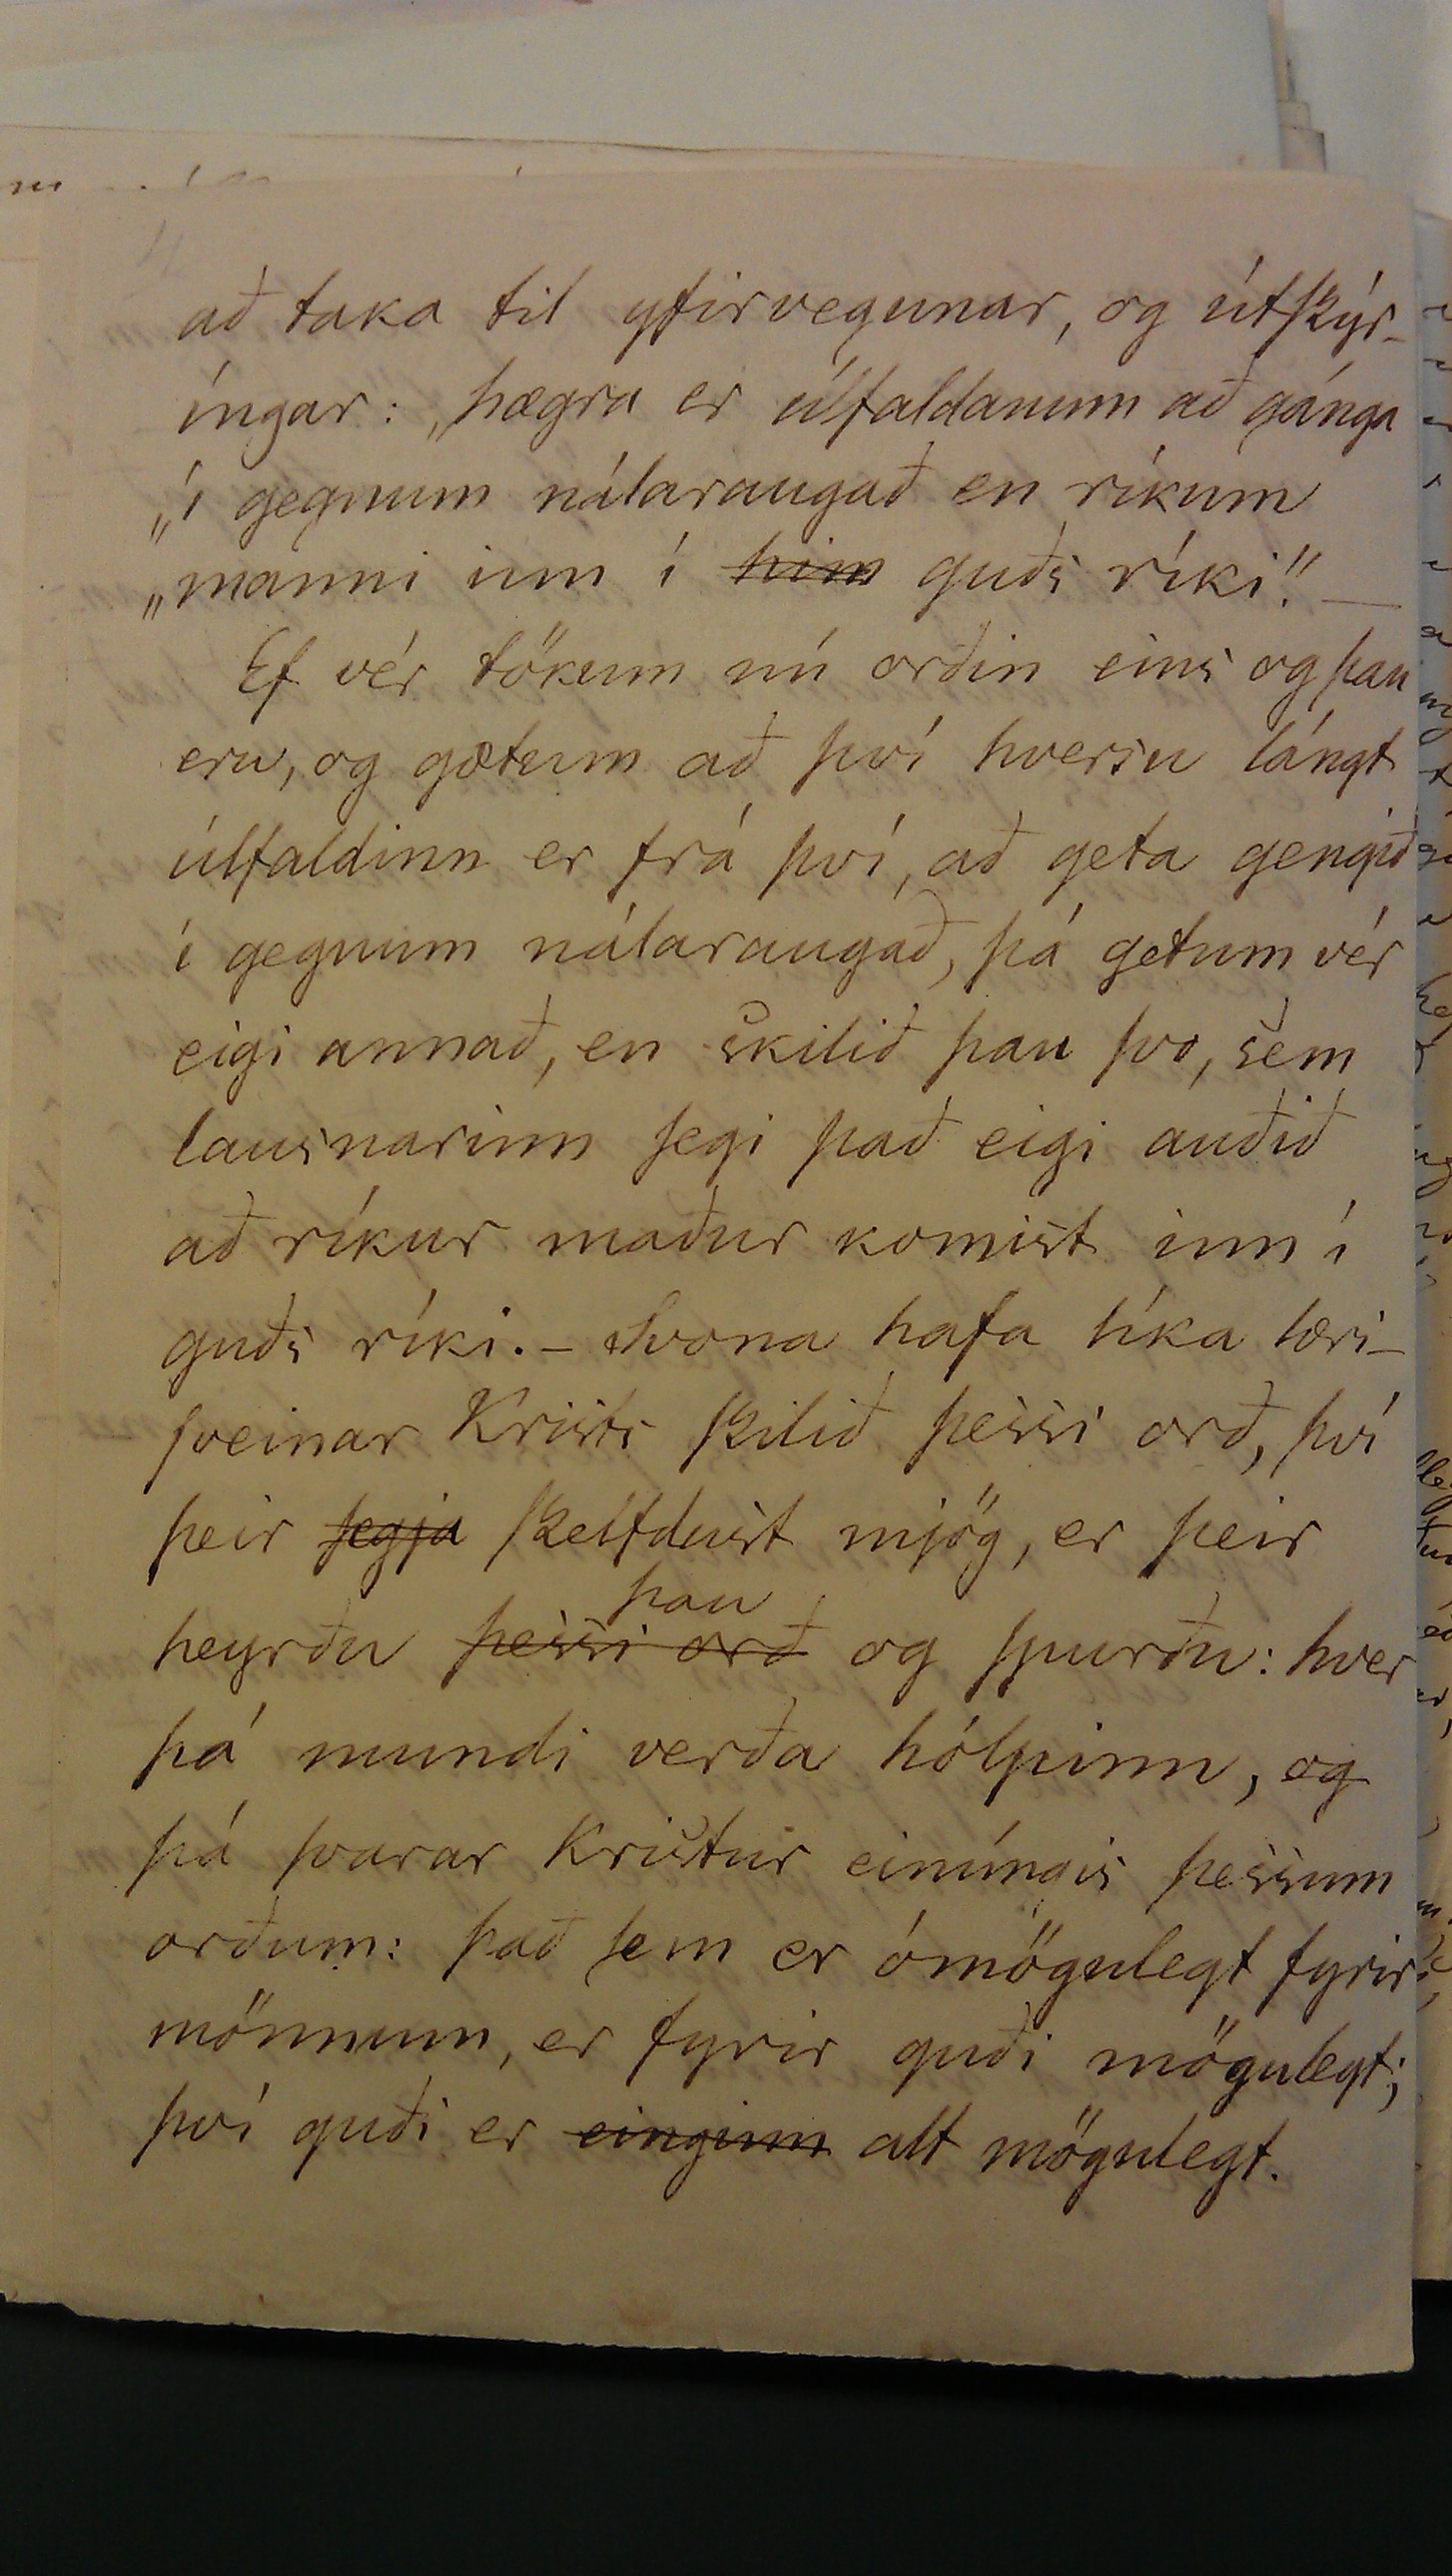 að taka til yfirvegunar, og útskýr-
íngar: „hægra er úlfaldanum að gánga
„í gegnum nálaraugað en ríkum
„manni inn í him guðs ríki." —
Ef vér tökum nú orðin eins og þau
eru, og gætum að því hversu lángt
úlfaldinn er frá því, að geta gengið
í gegnum nálaraugað, þá getum vér
eigi annað, en skilið þau svo, sem
lausnarinn segi það eigi auðið
að ríkur maður komist inn í
guðs ríki. – Svona hafa líka læri-
sveinar Krists skilið þessi orð, því
þeir segja skelfdust mjög, er þeir
þau
heyrðu þessi orð og spurðu: hver
þá mundi verða hólpinn, og
þá svarar Kristur einúngis þessum
orðum: það sem er ómögulegt fyrir
mönnum, er fyrir guði mögulegt;
því guði er einginn alt mögulegt.